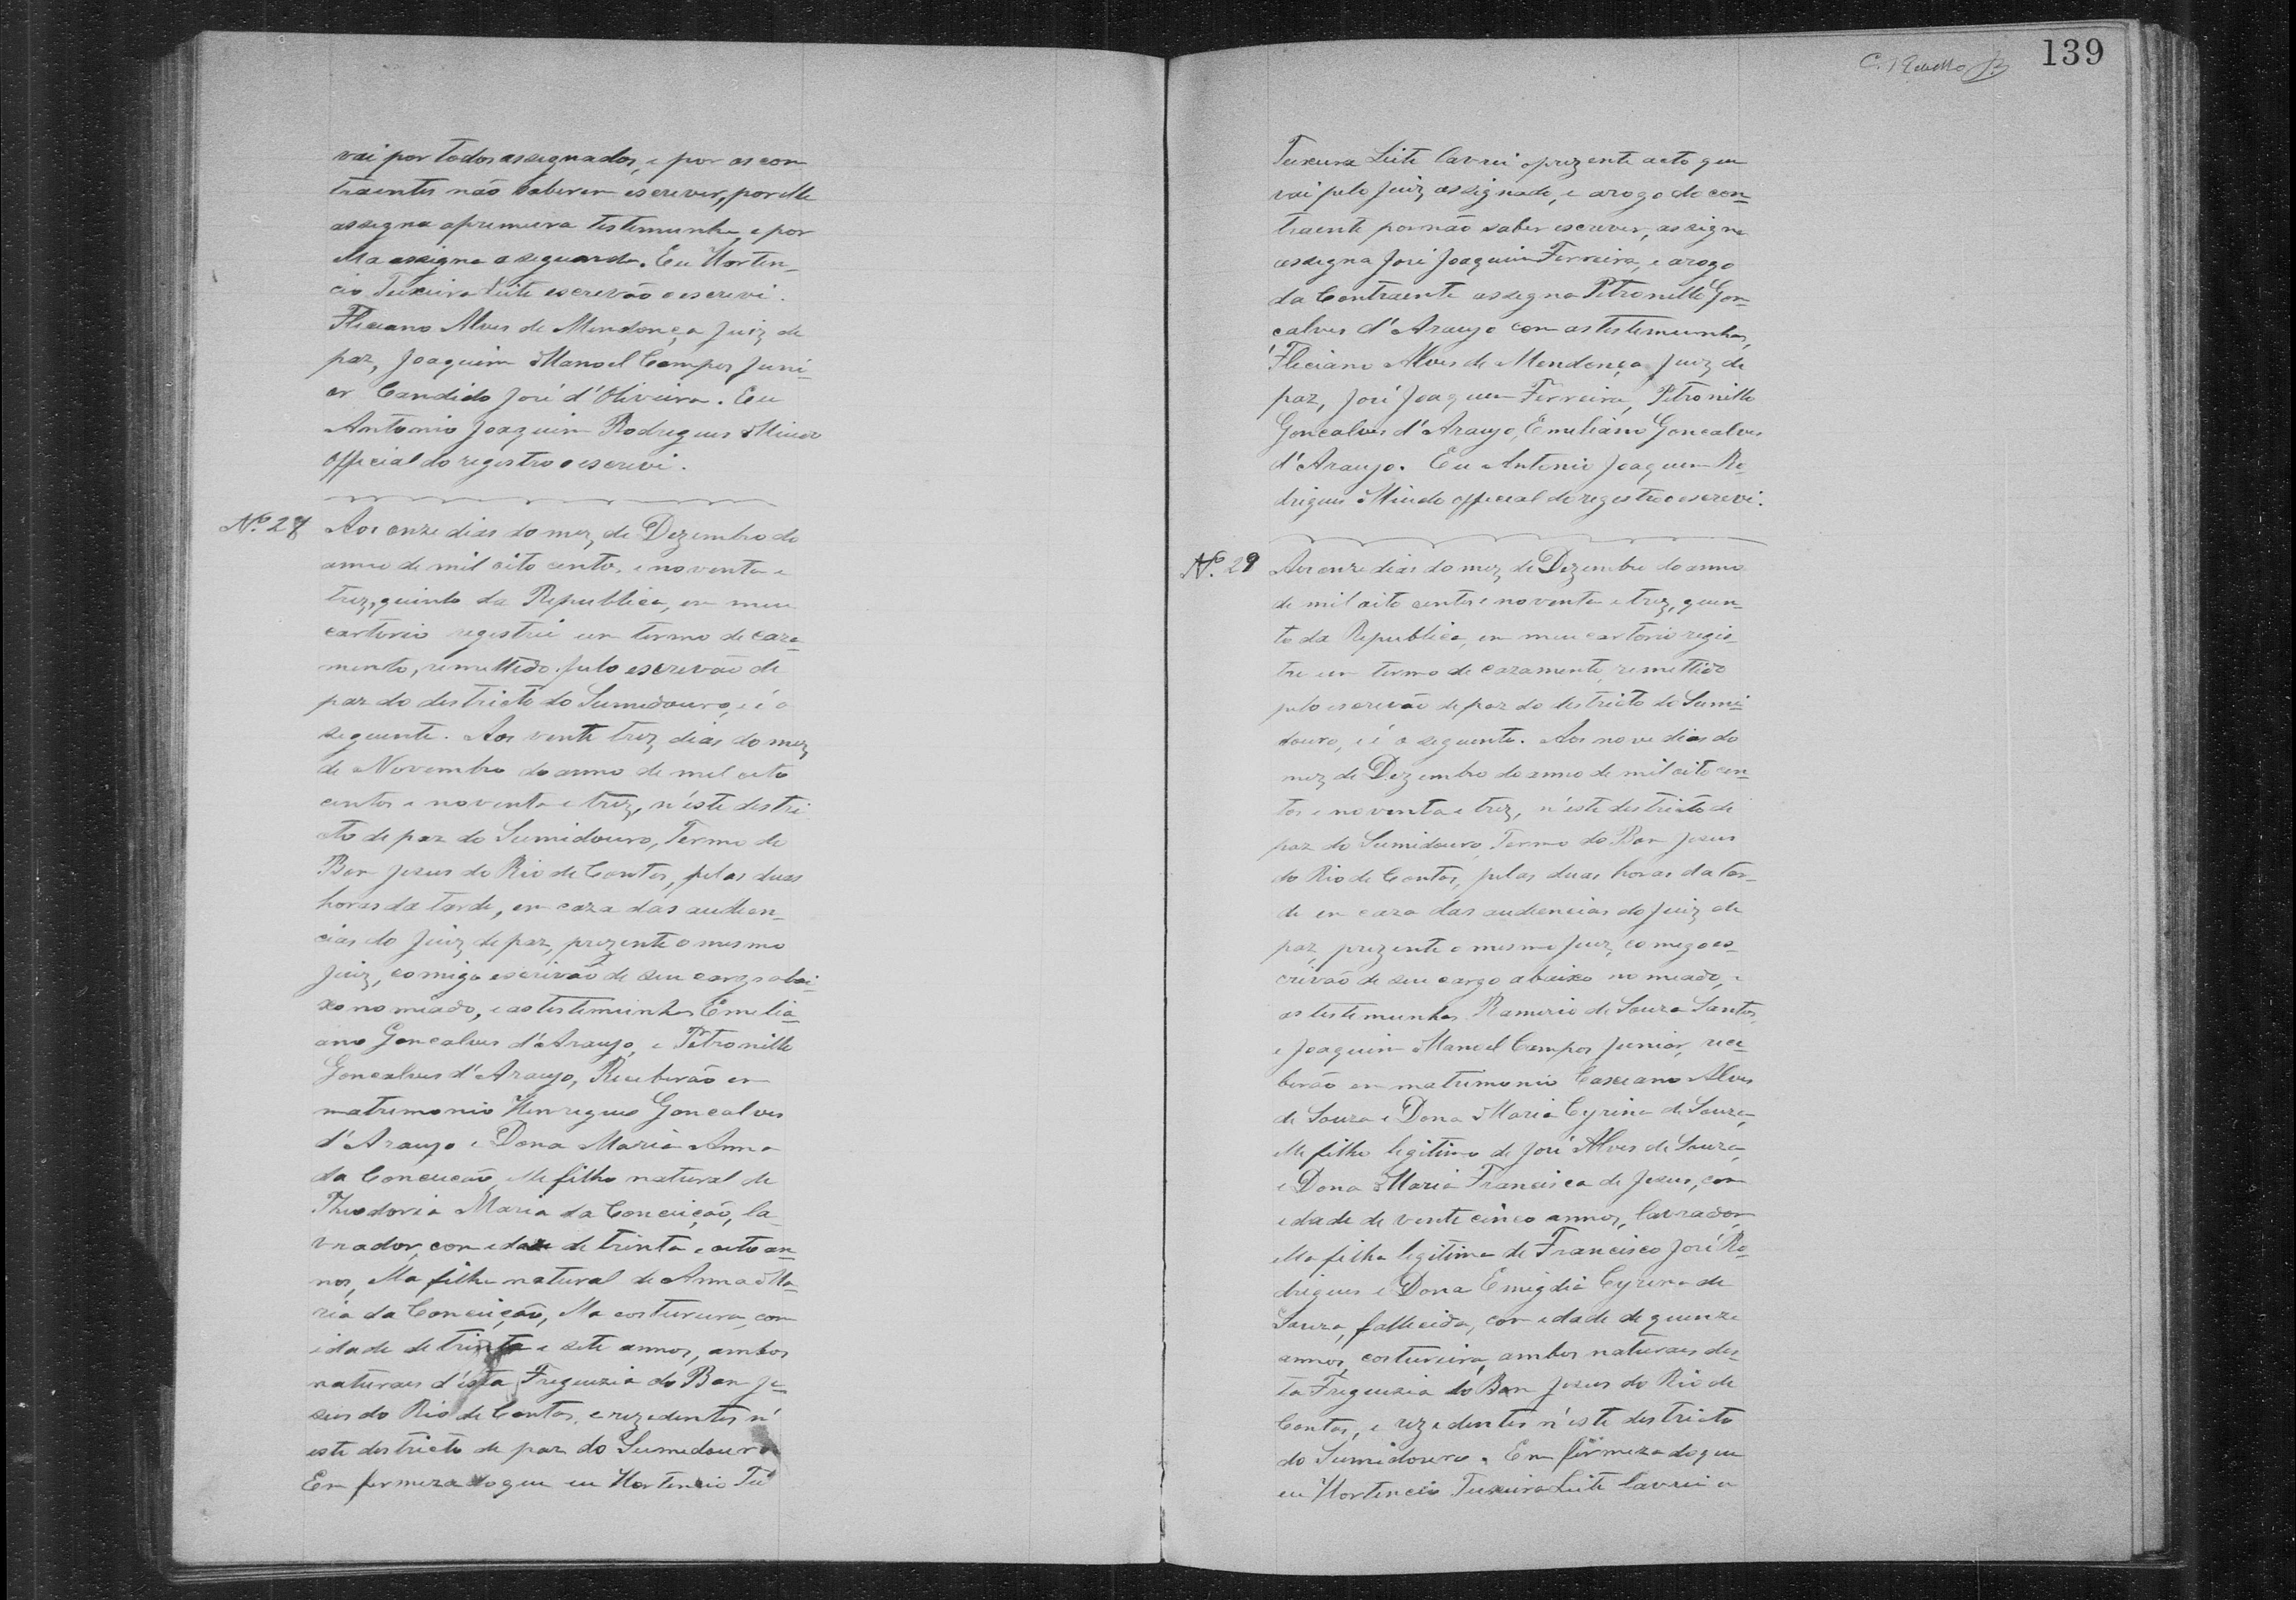 vai por todos assignados, e por os con
traentes não saberem escrever, por elle
assigna a primeira testemunha, e por
ella assigna a segunda. Eu Horten_
cio Teixeira Leite escrevão o escrevi.
Fliciano Alves de Mendonça Juiz de
paz, Joaquim Manoel Campos Juni_
or Candido José d'Oliveira. Eu
Antonio Joaquim Rodrigues Mindo
Official do registro o escrevi.
Nº. 28 Aos onze dias do mez de Dezembro do
anno de mil oito centos e noventa e
trez, quinto da Republica, em meu
cartorio registrei um termo de caza_
mento, remettido pelo escrevão de
paz do destricto do Sumidouro, e é o
seguinte. Aos vente trez dias do mez
de Novembro do anno de mil oito
centos e noventa e trez, n'este destri
cto de paz do Sumidouro, Termo do
Bom Jesus do Rio de Contas, pelas duas
horas da tarde, em caza das audien_
cias do Juiz de paz, prezente o mesmo
Juiz, comigo escrivão de seu cargo abai_
xo nomeado, e as testemunhas Emilia_
ano Goncalves d'Araujo, e Petronillo
Goncalves d'Araujo, Receberão em
matremonio Henrique Goncalves
d'Araujo e Dona Maria Anna
da Conceicão, elle filho natural de
Theodoria Maria da Conceição, la_
vrador, com edade de trinta e oito an_
nos, ella filha natural de Anna Ma_
ria da Conceição, ella costureira, com
idade de trinta e sete annos, ambos
naturaes d'ésta Freguezia do Bom Je_
sus do Rio de Contas, e rezedentes n'
este destricto de paz do Sumedouro
Em fermeza do que eu Hortencio Tei
139
Teixeira Leite lavrei o prezente acto que
vai pelo Juiz assignado, e arogo do con_
traente por não saber escrever, assigna
assegna José Joaquim Ferreira, e arogo
da Contraente assegna Petronillo Gon_
calves d'Araujo com as testemunhas,
Fliciano Alves de Mendonça Juiz de
paz, José Joaquim Ferreira, Petronillo
Goncalves d'Araujo, Emiliano Goncalves
d'Araujo. Eu Antonio Joaquim Ro_
drigues Mindo official do registro o escrevi.
Nº. 29 Aos onze dias do mez de Dezembro do anno
de mil oito centos e noventa e trez, quin_
to da Republica, em meu cartorio regis_
trei um termo de cazamento, remettido
pelo escrevão de paz do destricto do Sumi_
douro, e é o seguinte. Aos nove dias do
mez de Dezembro do anno de mil oito cen_
tos e noventa e trez, n'este destricto de
paz do Sumidouro, Termo do Bom Jesus
do Rio de Contas, pelas duas horas da tar_
de em caza das audiencias do Juiz de
paz, prezente o mesmo Juiz, comego es_
crivão de seu cargo abaixo nomeado, e
as testemunhas Ramirio de Souza Santos,
e Joaquim Manoel Campos Junior, rece_
berão em matrimonio Casciano Alves
de Souza e Dona Maria Cyrina de Souza,
elle filho legitimo de José Alves de Souza,
e Dona Maria Francisca de Jesus, com
edade de vente cinco annos, lavrador,
ella filha legitima de Francisco José Ro_
drigues e Dona Emigdia Cyrina de
Souza, fallecida, com edade de quinze
annos, costureira, ambos naturaes des_
ta Freguezia do Bom Jesus do Rio de
Contas, e rezedentes n'este destricto
do Sumidouro. Em firmeza do que
eu Hortencio Teixeira Leite lavrei o